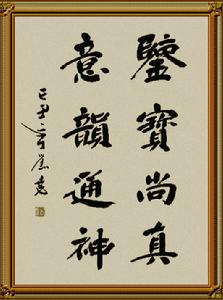 鑒寶尚真
意韻通神
己丑